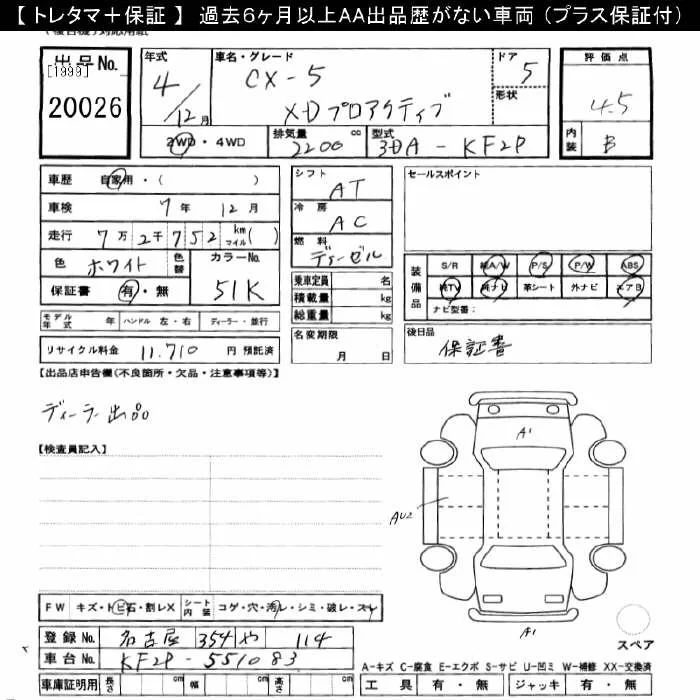 【 トレタマ＋保証 】 過去６ヶ月以上AA出品歴がない車両 （プラス保証付）
出品No.
[1999]
20026
年式
4／12月
車名・グレード
CX-5
XDプロアクティブ
ドア
5
形状
評価点
4.5
内装 B
2WD・4WD
排気量 2200 cc
型式 3DA - KF2P
車歴 自家用・( )
車検 7年 12月
走行 7万2千752 km マイル( )
色 ホワイト 色替
カラーNo. 51K
保証書 有・無
シフト AT
冷房 AC
燃料 ディーゼル
乗車定員 名
積載量 kg
総重量 kg
名変期限
月 日
セールスポイント
装備品
S/R 純A/W P/S P/W ABS
純TV 純ナビ 革シート 外ナビ エアB
ナビ型番：
後日品
保証書
モデル年式 年 ハンドル 左・右 ディーラー・並行
リサイクル料金 11,710 円 預託済
【出品店申告欄(不良箇所・欠品・注意事項等)】
ディーラー出品
【検査員記入】
A1
AU2
A1
スペア
FW キズ・トビ石・割レX シート内装 コゲ・穴・汚レ・シミ・破レ・スレ
登録No. 名古屋 354 や 114
車台No. KF2P-551083
車庫証明用 長さ cm 幅 cm 高さ cm
A-キズ C-腐食 E-エクボ S-サビ U-凹ミ W-補修 XX-交換済
工具 有・無 ジャッキ 有・無